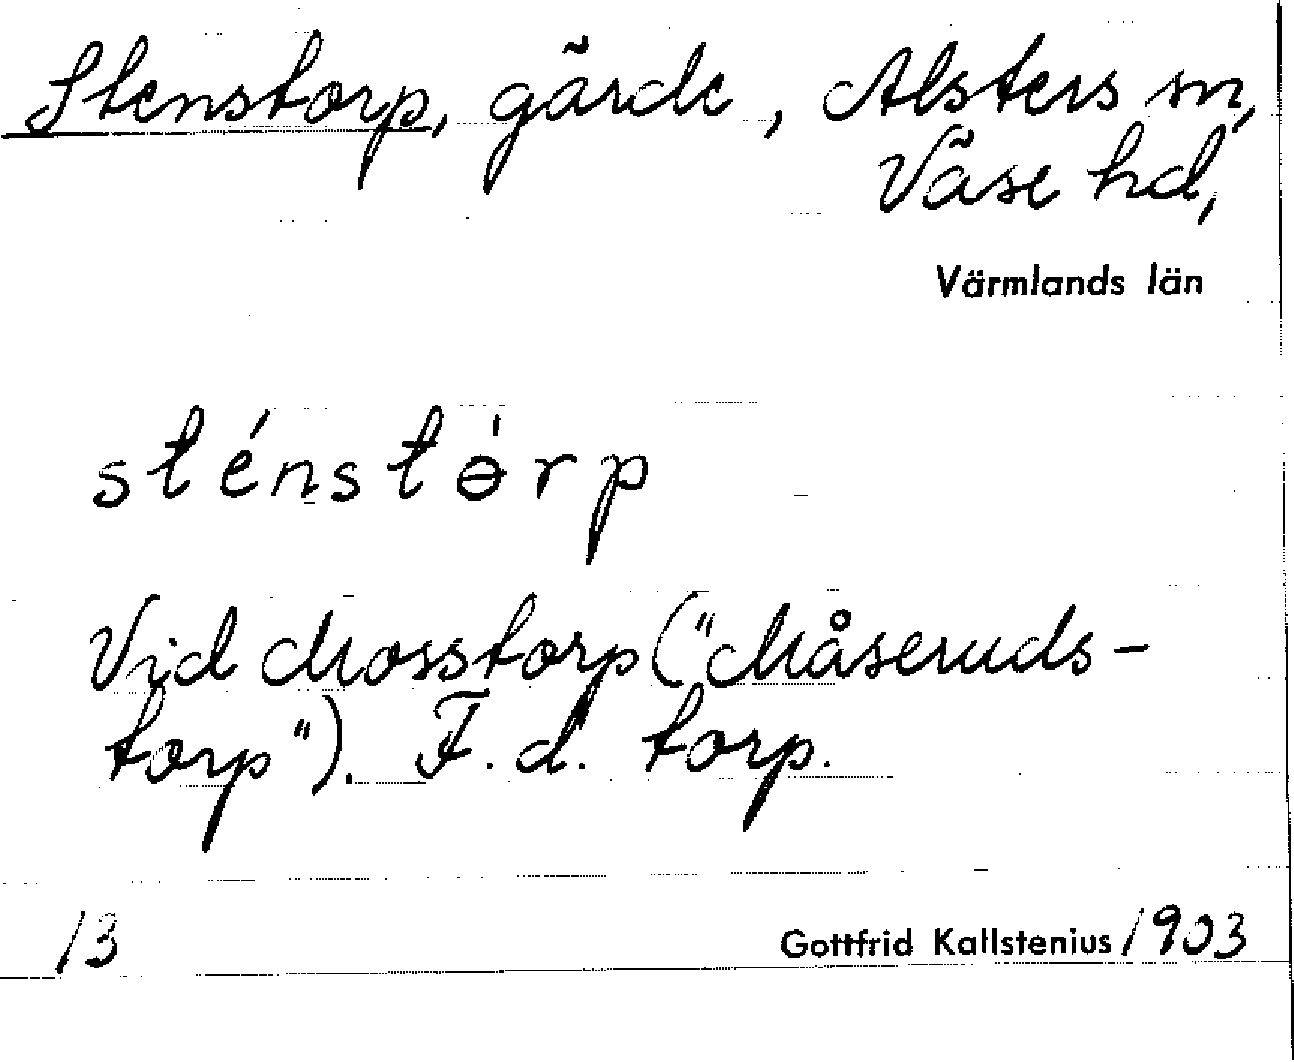 Stenstorp, gärde, Alsters sn,
Väse hd,
Värmlands län
sténstɵ̀rp
Vid Mosstorp ("Måseruds-
torp"). F. d. torp.
13 Gottfrid Kallstenius 1903